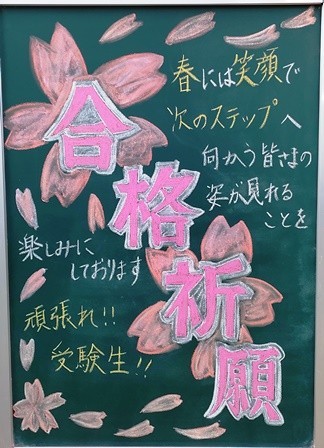 合格祈願
春には笑顔で
次のステップへ
向かう皆さまの
姿が見れる
ことを
楽しみに
しております
頑張れ!!
受験生!!